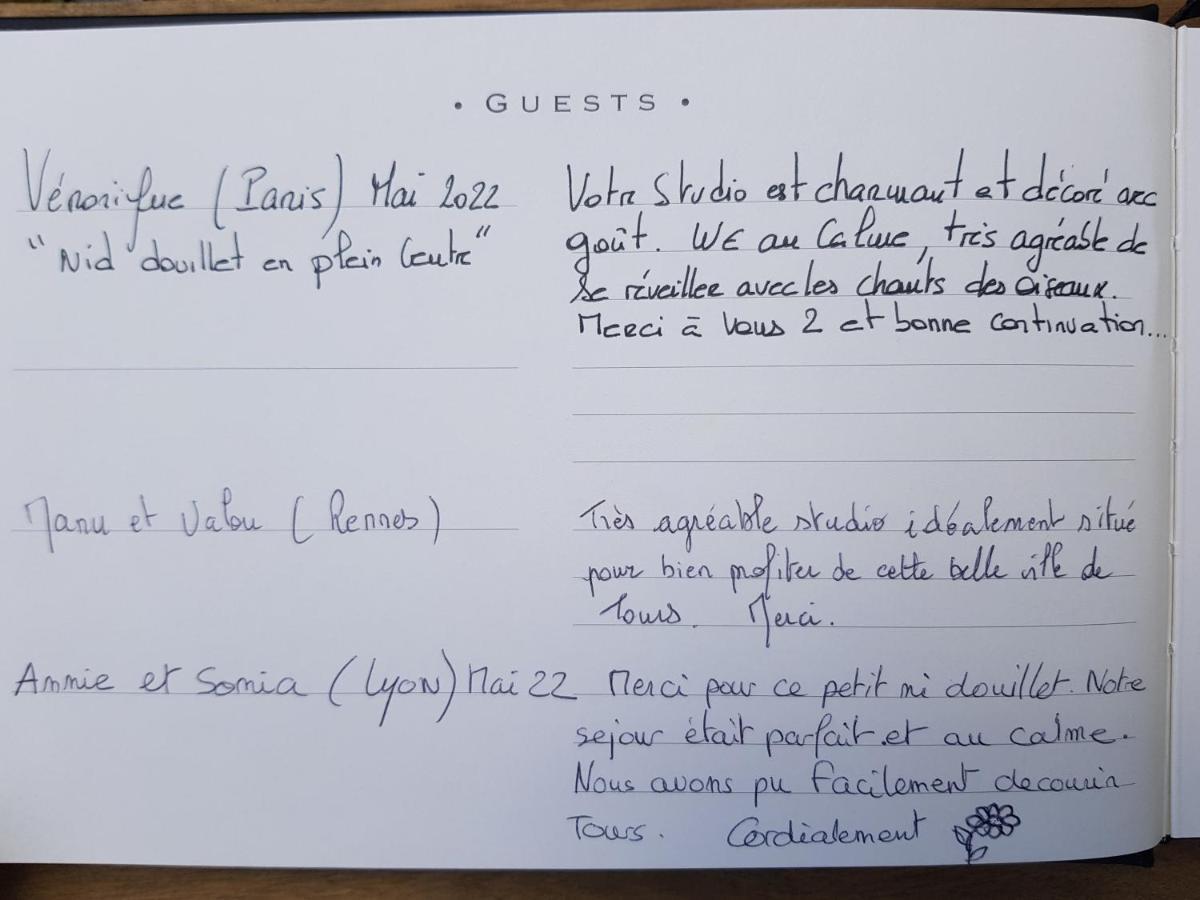 • GUESTS •
Véronique (Paris) Mai 2022
"Nid douillet en plein Centre"
Votre Studio est charmant et décoré avec
goût. WE au Calme, très agréable de
se réveiller avec les chants des oiseaux.
Merci à Vous 2 et bonne continuation...
Manu et Valou (Rennes)
Très agréable studio idéalement situé
pour bien profiter de cette belle ville de
Tours. Merci.
Annie et Sonia (Lyon) Mai 22
Merci pour ce petit ni douillet. Notre
sejour était parfait et au calme.
Nous avons pu facilement decouvrir
Tours. Cordialement